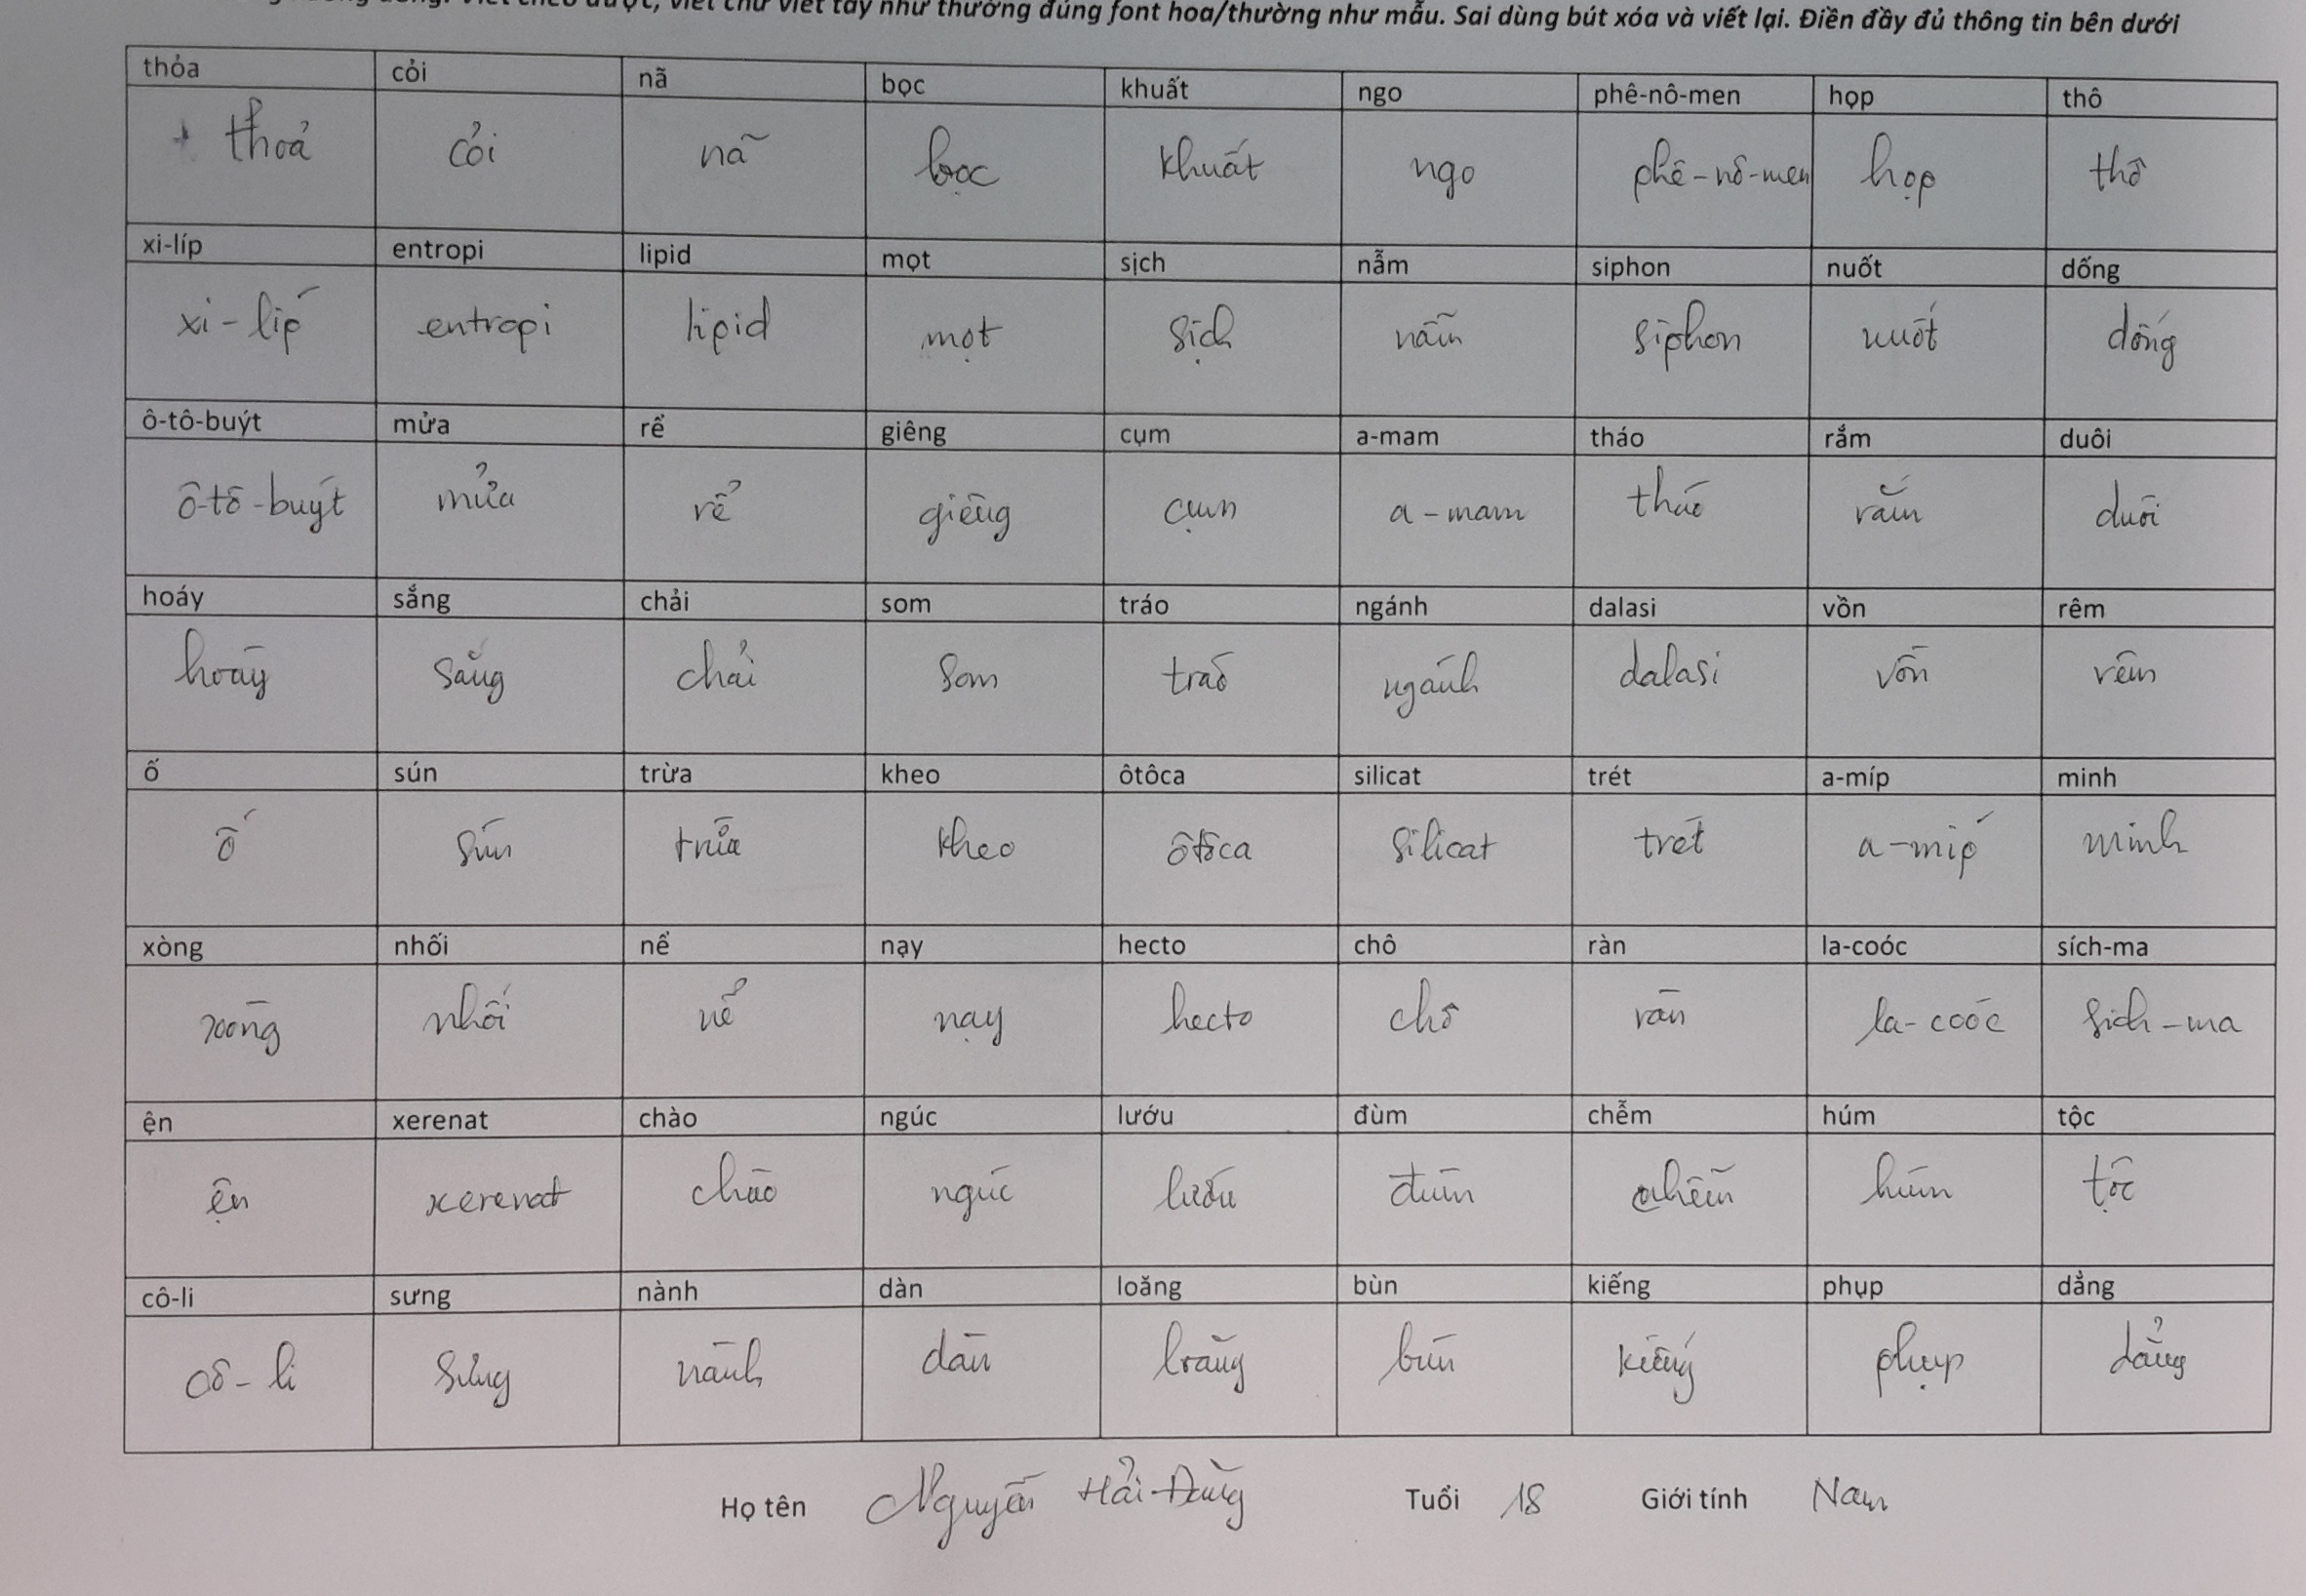 viết chữ viết tay như thường đúng font hoa/thường như mẫu. Sai dùng bút xóa và viết lại. Điền đầy đủ thông tin bên dưới
thỏa cỏi nã bọc khuất ngo phê-nô-men họp thô
thoả cỏi nã bọc khuất ngo phê-nô-men họp thô
xi-líp entropi lipid mọt sịch nẫm siphon nuốt dống
xi-líp entropi lipid mọt sịch nẫm siphon nuốt dống
ô-tô-buýt mửa rể giêng cụm a-mam tháo rắm duôi
ô-tô-buýt mửa rể giêng cụm a-mam tháo rắm duôi
hoáy sắng chải som tráo ngánh dalasi vồn rêm
hoáy sắng chải som tráo ngánh dalasi vồn rêm
ố sún trừa kheo ôtôca silicat trét a-míp minh
ố sún trừa kheo ôtôca silicat trét a-míp minh
xòng nhối nể nạy hecto chô ràn la-coóc sích-ma
xòng nhối nể nạy hecto chô ràn la-coóc sích-ma
ện xerenat chào ngúc lướu đùm chễm húm tộc
ện xerenat chào ngúc lướu đùm chễm húm tộc
cô-li sưng nành dàn loăng bùn kiếng phụp dằng
cô-li sưng nành dàn loăng bùn kiếng phụp dẳng
Họ tên Nguyễn Hải Đăng Tuổi 18 Giới tính Nam